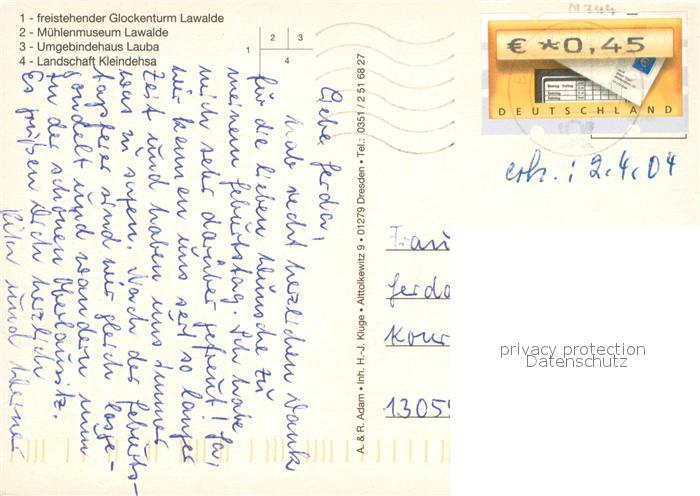 1 - freistehender Glockenturm Lawalde
2 - Mühlenmuseum Lawalde
3 - Umgebindehaus Lauba
4 - Landschaft Kleindehsa
1
2
3
4
Liebe Gerda,
hab recht herzlichen Dank
für die lieben Wünsche zu
meinem Geburtstag. Ich habe
mich sehr darüber gefreut! Ja,
wir kennen uns seit so langer
Zeit und haben uns immer
was zu sagen. Nach der Geburts-
tagsfeier sind wir gleich losge-
gondelt und wandern nun
in der schönen Oberlausitz.
Es grüßen Dich herzlich
und Werner
A. & R. Adam • Inh. H.-J. Kluge • Alttolkewitz 9 • 01279 Dresden • Tel.: 0351 / 2 51 68 27
€ *0,45
DEUTSCHLAND
erh.: 2.4.04
Frau
Gerda
1305
privacy protection
Datenschutz